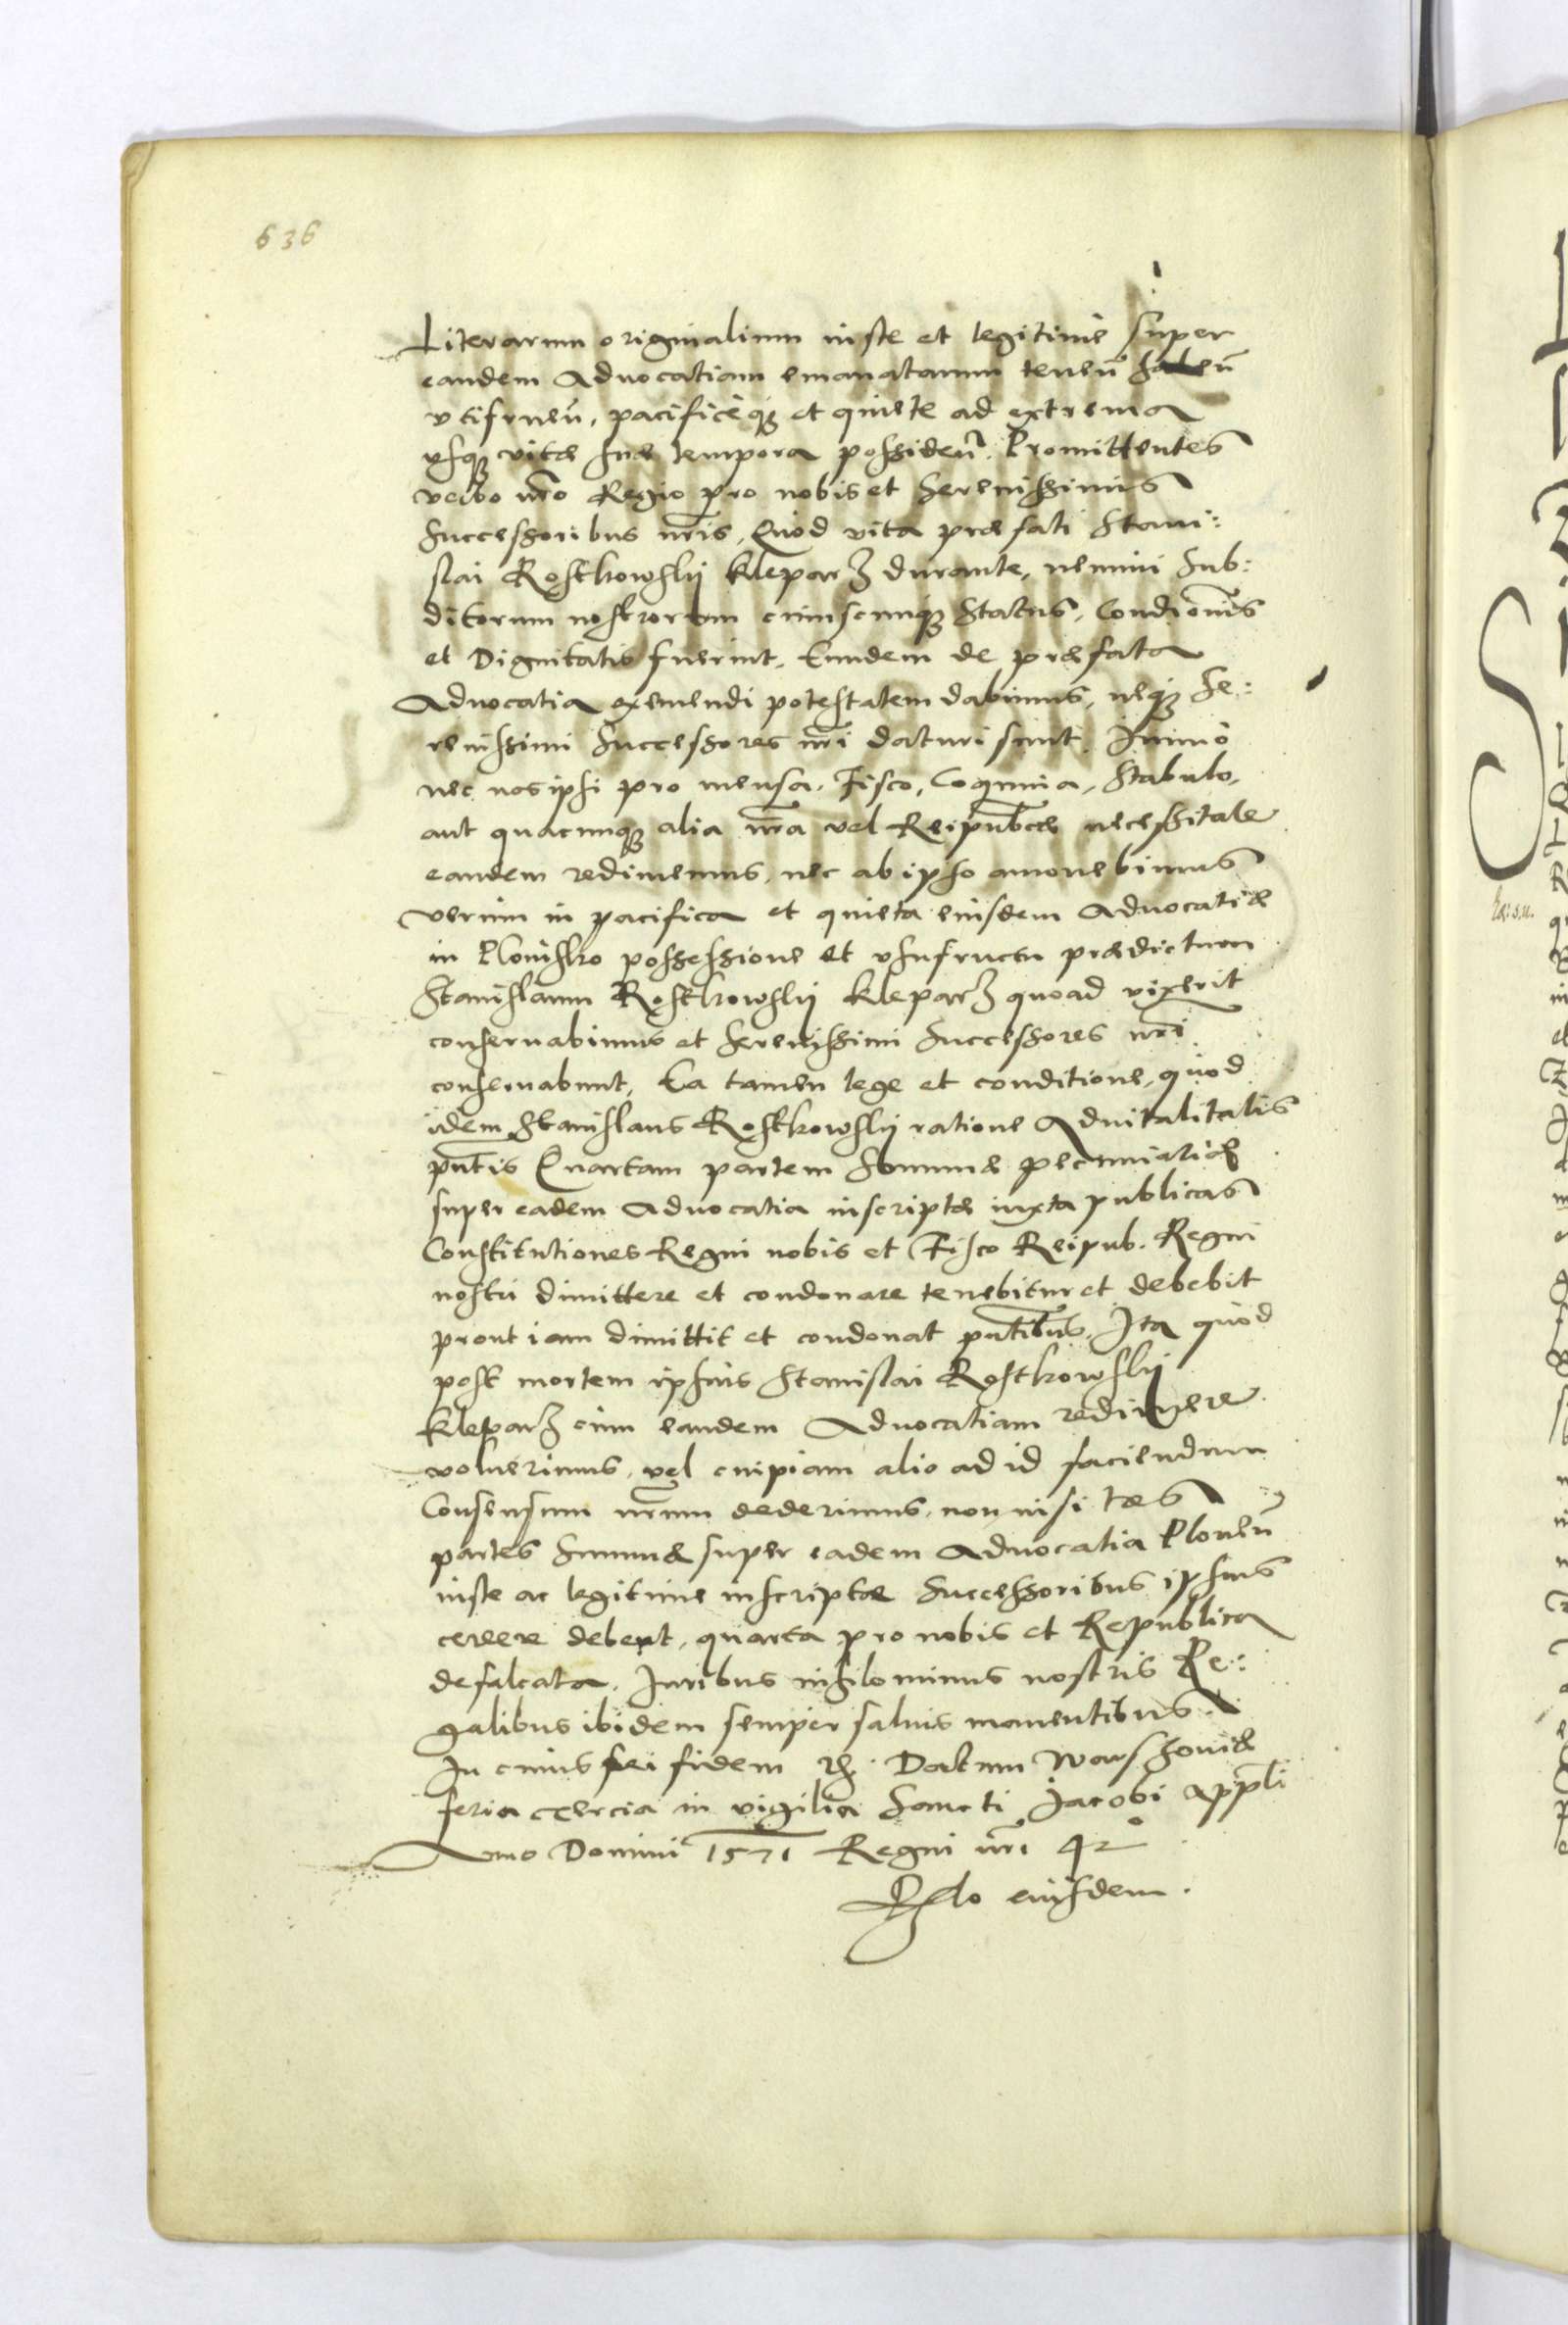 636
Literarum originalium iuste et legitime super
eandem Aduocatiam emanatarum teneñ habeñ
vtifrueñ, pacificeq₃ et quiete ad extrema
vsq₃ vitæ suæ tempora possideñ. Promittentes
verbo nr̃o Regio pro nobis et Serenissimis
Successoribus nr̃is, Quod vita præfati Stani:
slai Rostkowskij Kleparz durante, nemini Sub:
ditorum nostrorum cuiuscunq₃ Status, Condicionis
et Dignitatis fuerint, Eundem de præfata
Aduocatia eximendi potestatem dabimus, neq₃ Se:
renissimi Successores nr̃i daturi sunt. Immò
nec nos ipsi pro mensa, Fisco, Coquina, Stabulo,
aut quacunq₃ alia nr̃a vel Reipubcæ necessitate
eandem redimemus, nec ab ipso amouebimus
verum in pacifica et quieta eiusdem Aduocatiæ
in Plonisko possessione et vsufructu prædictum
Stanislaum Rostkowskij Kleparz quoad vixerit
conseruabimus et Serenissimi Successores nr̃i
conseruabunt, Ea tamen lege et conditione, quod
idem Stanislaus Rostkowskij ratione Aduitalitatis
pñtis Quartam partem Summæ pecuniariæ
super eadem Aduocatia inscriptæ iuxta publicas
Constitutiones Regni nobis et Fisco Reipub. Regni
nostri dimittere et condonare tenebitur et debebit
prout iam dimittit et condonat pñtibus. Ita quod
post mortem ipsius Stanislai Rostkowskij
Kleparz cum eandem Aduocatiam redimere
voluerimus, vel cuipiam alio ad id faciendum
Consensum nr̃um dederimus, non nisi tres
partes Summæ super eadem Aduocatia Ploneñ
iuste ac legitime inscriptæ Successoribus ipsius
cedere debent, quarta pro nobis et Republica
defalcata. Iuribus nihilominus nostris Re:
galibus ibidem semper saluis manentibus.
In cuius rei fidem &c. Datum Warschouiæ
feria tercia in vigilia Sancti Jacobi Appli
Anno Domini 1571 Regni nr̃i 42
Rlo eiusdem.